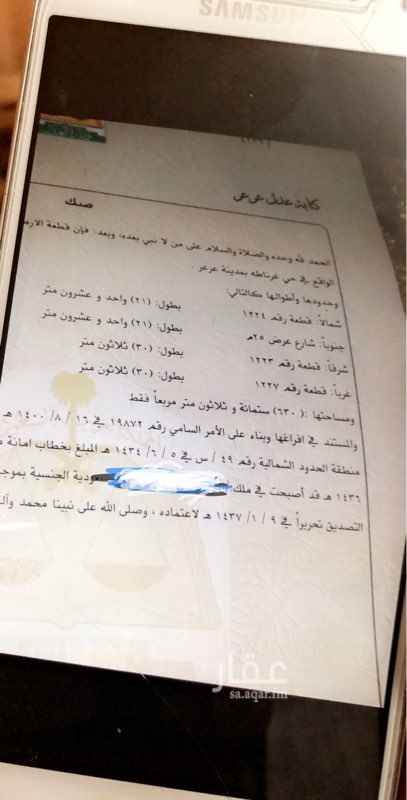 SAMSUNG
كتابة عدل عرعر
صك
الحمد لله وحده والصلاة والسلام على من لا نبي بعده، وبعد: فإن قطعة
الواقع في حي غرناطه بمدينة عرعر .
وحدودها وأطوالها كالتالي:
شمالاً: قطعة رقم ١٢٢٤ بطول: (٢١) واحد و عشرون متر
جنوباً: شارع عرض ٢٥م بطول: (٢١) واحد و عشرون متر
شرقاً: قطعة رقم ١٢٢٣ بطول: (٣٠) ثلاثون متر
غرباً: قطعة رقم ١٢٢٧ بطول: (٣٠) ثلاثون متر
ومساحتها :( ٦٣٠) ستمائة و ثلاثون متر مربعاً فقط
والمستند في افراغها وبناء على الأمر السامي رقم ١٩٨٧٢ في ١٦ / ٨/ ١٤٠٠ هـ
منطقة الحدود الشمالية رقم ٤٩/ س في ٥ / ٦/ ١٤٣٤ هـ المبلغ بخطاب امانة
١٤٣٦ هـ قد أصبحت في ملك ودية الجنسية بموجب
التصديق تحريراً في ٩ / ١/ ١٤٣٧ هـ لاعتماده ، وصلى الله على نبينا محمد وآله
عقار
sa.aqar.fm